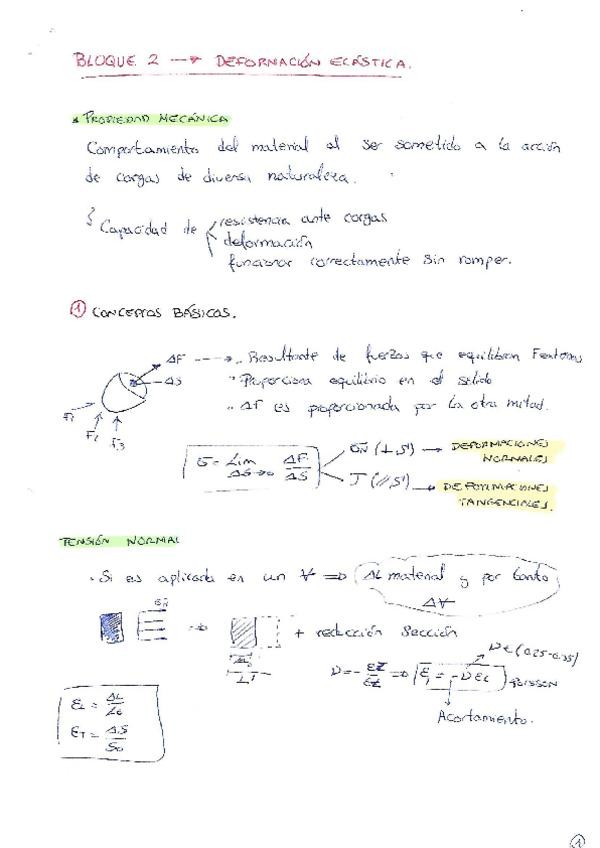 BLOQUE 2 → DEFORMACIÓN ELÁSTICA.
* PROPIEDAD MECÁNICA
Comportamiento del material al ser sometido a la acción
de cargas de diversa naturaleza.
Capacidad de resistencia ante cargas
deformación
funcionar correctamente sin romper.
① CONCEPTOS BÁSICOS.
ΔF → Resultante de fuerzas que equilibran
ΔS
Proporciona equilibrio en el sólido
ΔF es proporcionada por la otra mitad.
F1 F2 F3
σ = Lim ΔS→0 ΔF/ΔS
σN (⊥ S) → DEFORMACIONES NORMALES
τ (// S) → DEFORMACIONES TANGENCIALES.
TENSIÓN NORMAL
Si es aplicada en un ∀ ⇒ ΔL material y por tanto
Δ∀
σN
+ reducción sección
⇒ -νεL POISSON
Acortamiento.
εL = ΔL/L0
εT = ΔS/S0
①